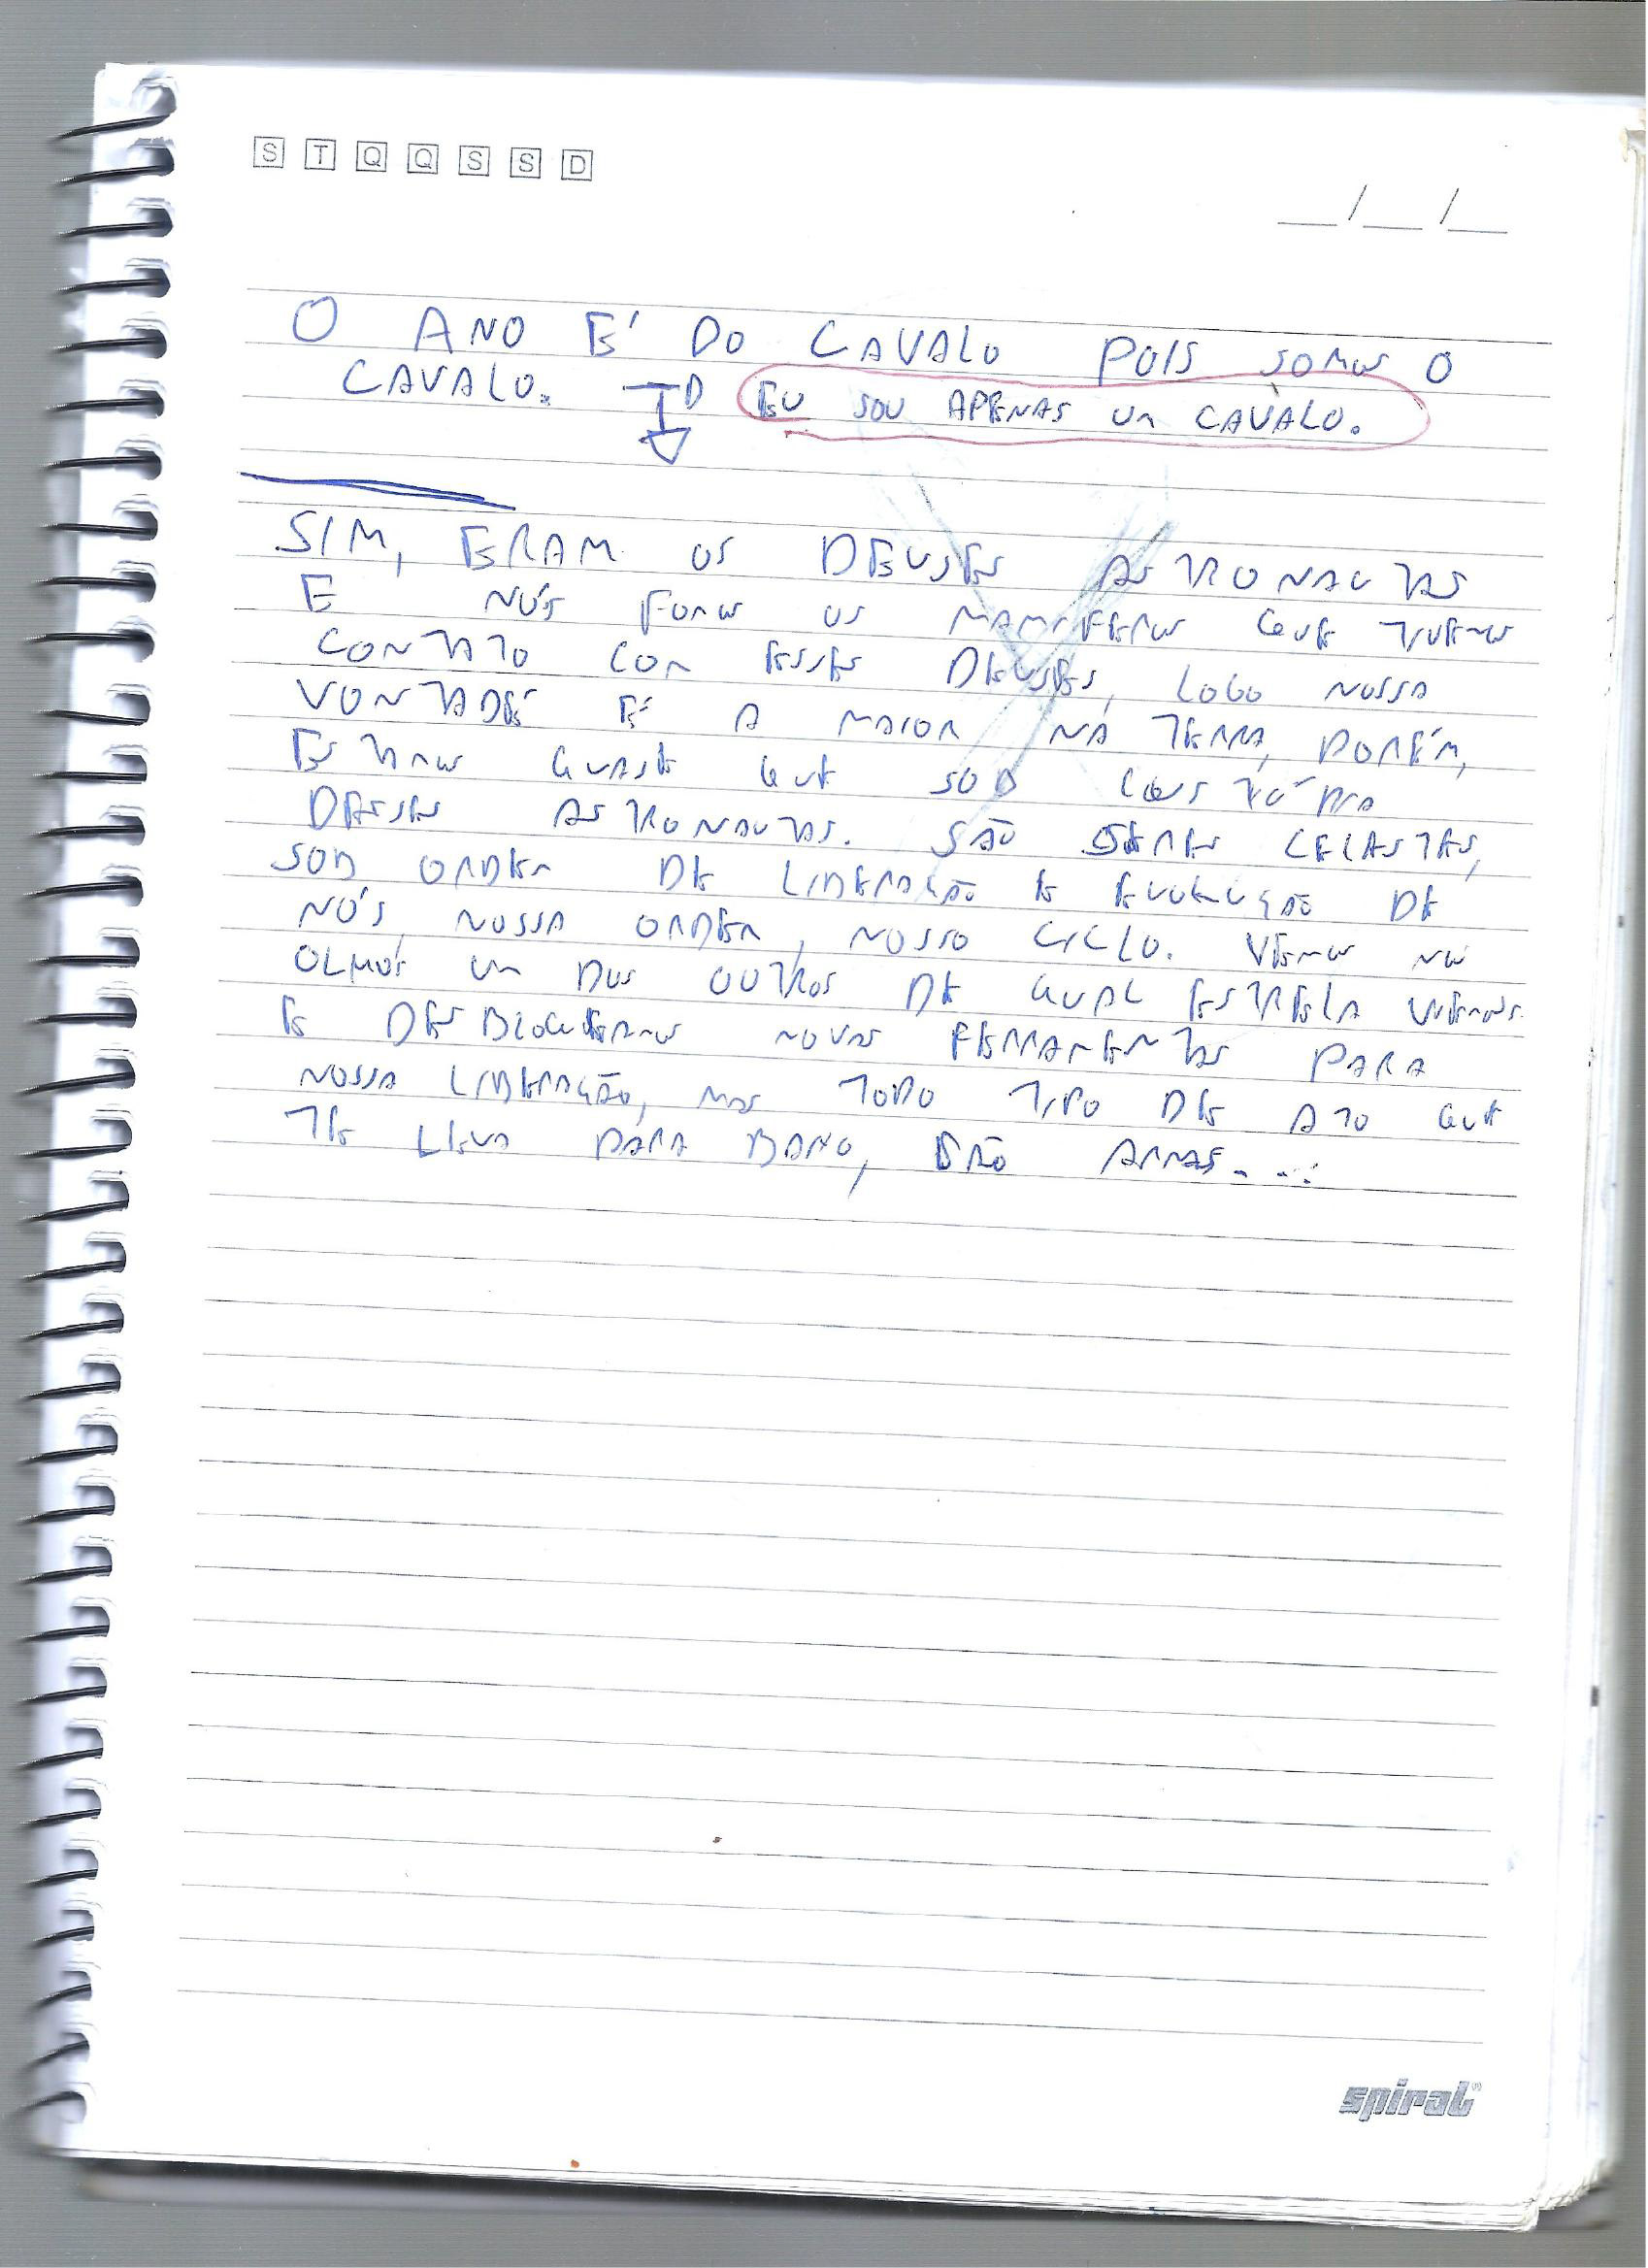 S T Q Q S S D
__/__/__
O ANO É DO CAVALO POIS SOMOS O
CAVALO. EU SOU APENAS UM CAVALO.
SIM, ERAM OS DEUSES ASTRONAUTAS
E NÓS FOMOS OS MAMIFEROS QUE TIVEMOS
CONTATO COM ESSES DEUSES, LOGO NOSSA
VONTADE É A MAIOR NA TERRA, PORÉM,
ESTAMOS QUASE QUE SOB CUSTÓDIA
DESSES ASTRONAUTAS. SÃO SERES CELESTES,
SOB ORDEM DE LIBERAÇÃO E EVOLUÇÃO DE
NÓS, NOSSA ORDEM, NOSSO CICLO. VEMOS NO
OLHOS UM DOS OUTROS DE QUAL ESTRELA VIEMOS
E DESBLOQUEAMOS NOVAS FERRAMENTAS PARA
NOSSA LIBERAÇÃO, MAS TODO TIPO DE ATO QUE
TE LEVA PARA BAIXO, SÃO ARMAS...
spiral